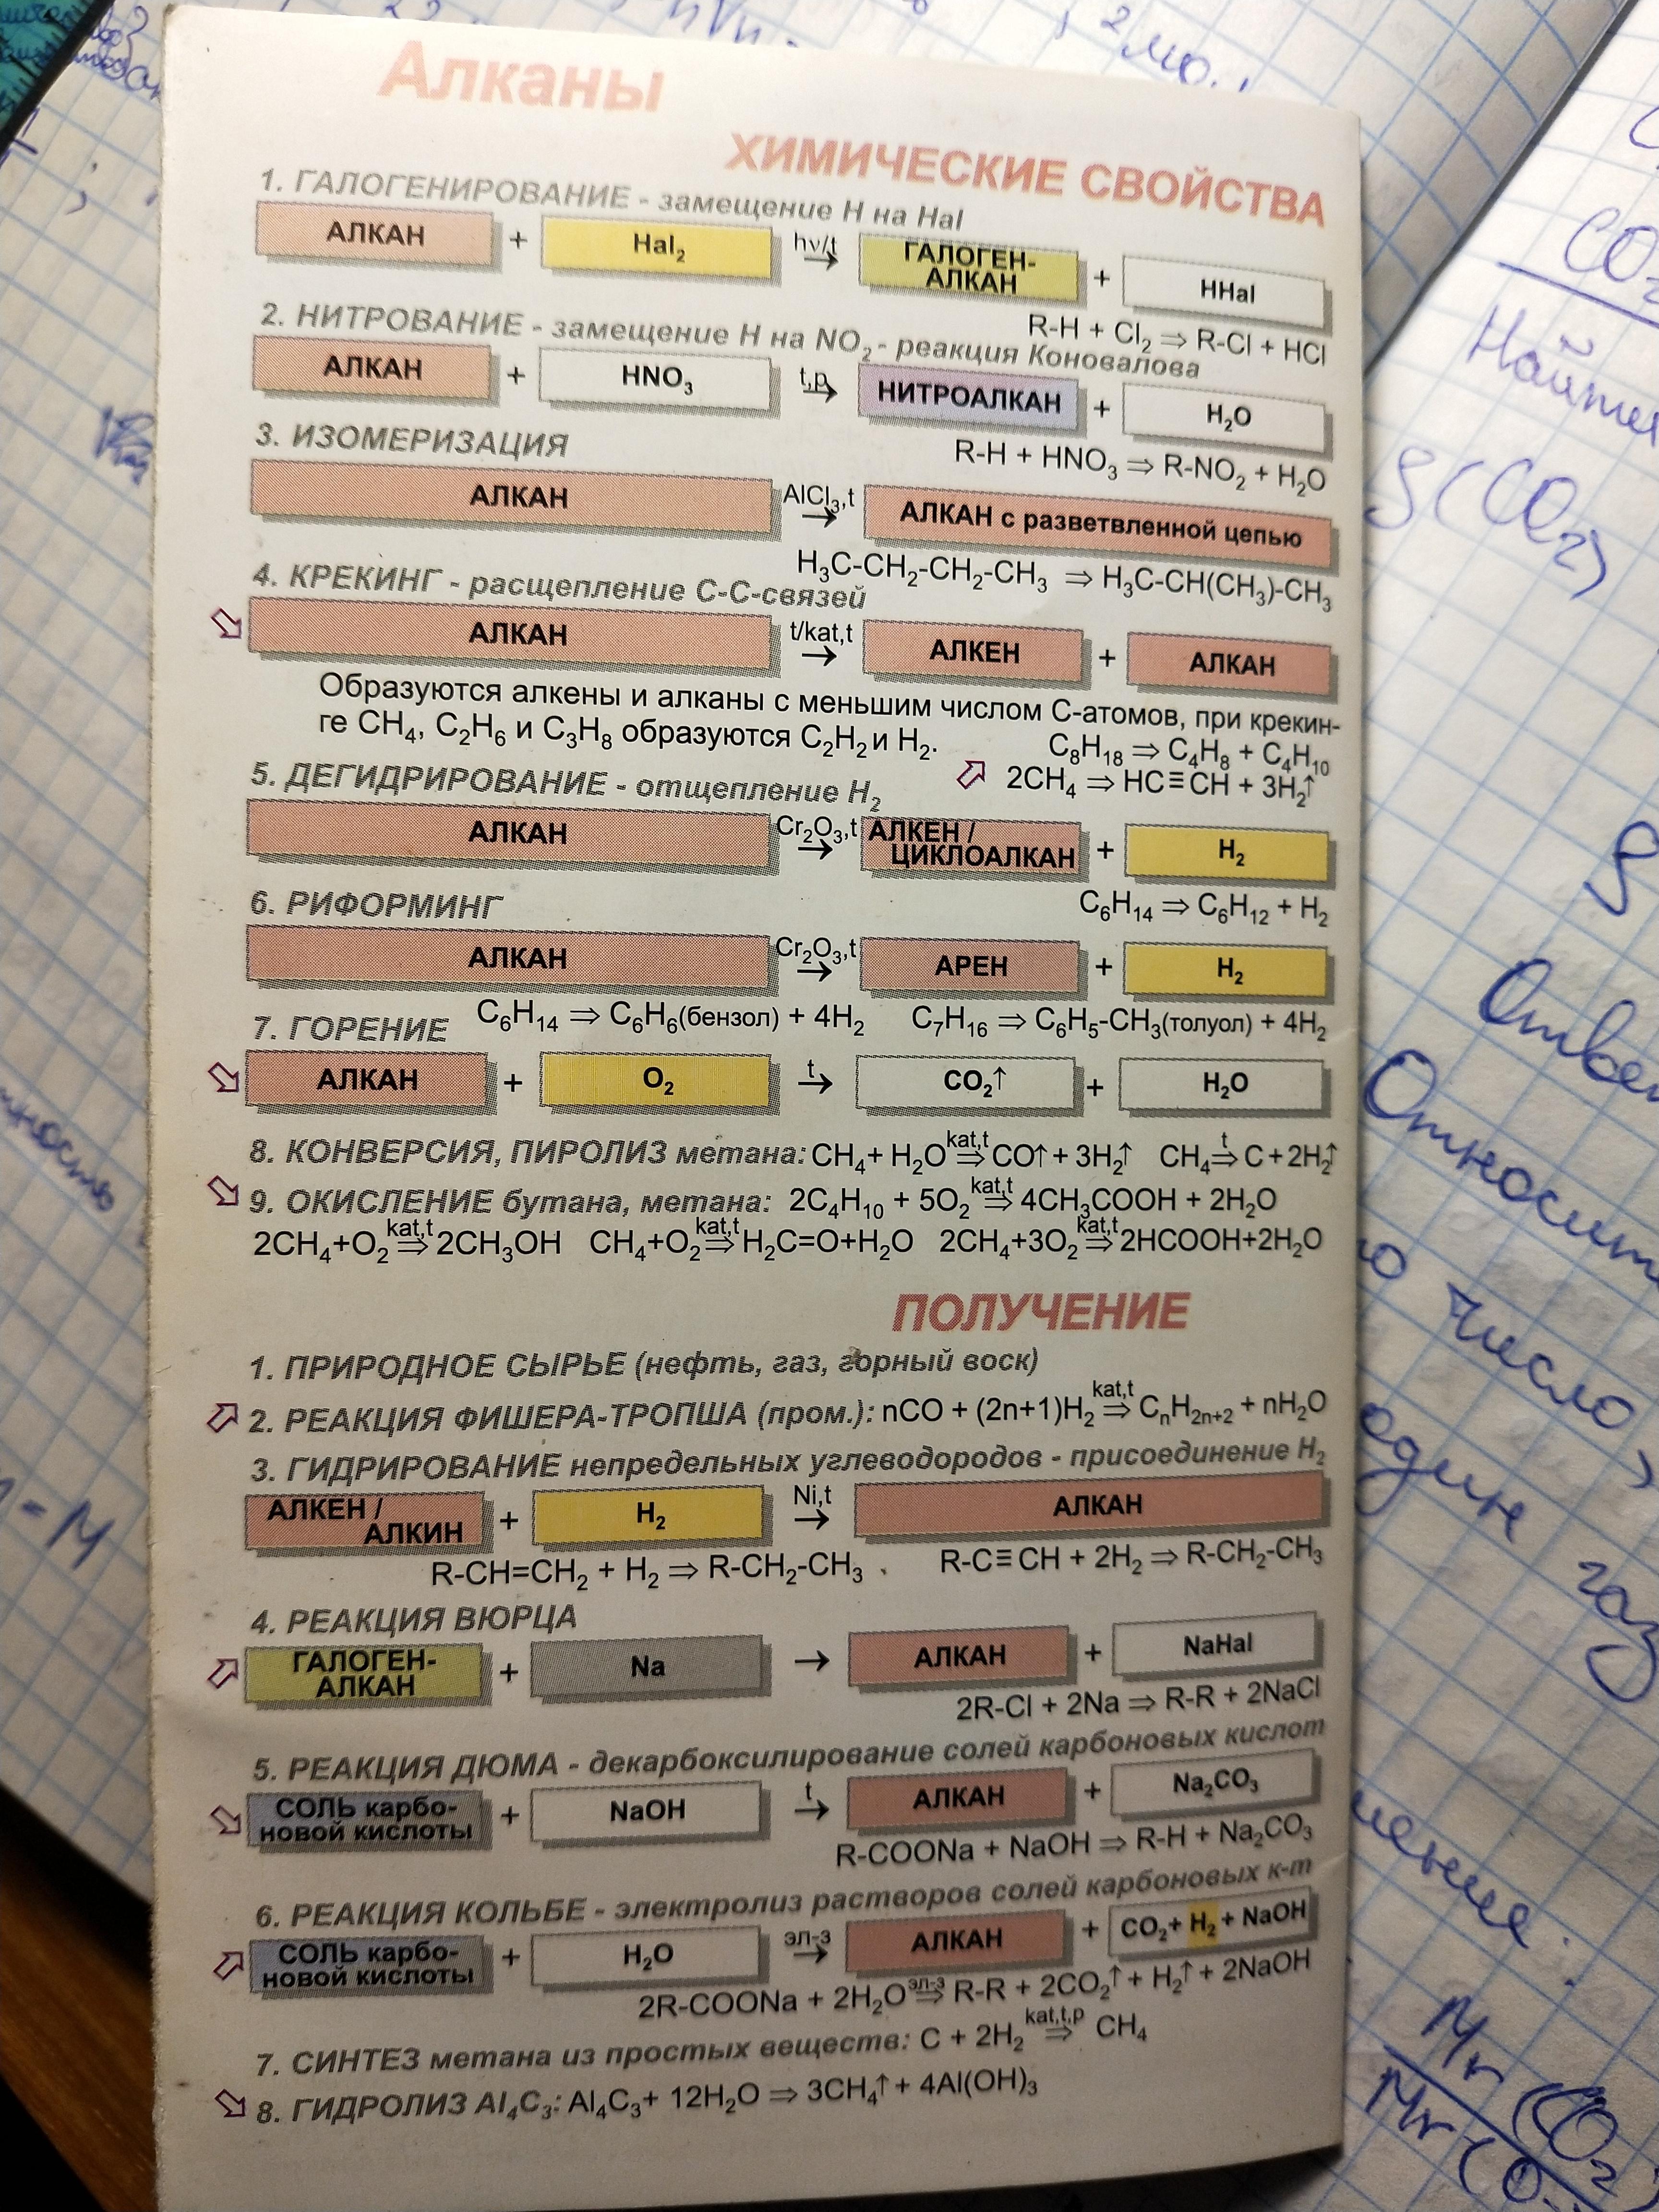 Алканы
ХИМИЧЕСКИЕ СВОЙСТВА
1. ГАЛОГЕНИРОВАНИЕ - замещение H на Hal
АЛКАН + Hal₂ hν/t → ГАЛОГЕН-АЛКАН + HHal
R-H + Cl₂ ⇒ R-Cl + HCl
2. НИТРОВАНИЕ - замещение H на NO₂ - реакция Коновалова
АЛКАН + HNO₃ t,p → НИТРОАЛКАН + H₂O
R-H + HNO₃ ⇒ R-NO₂ + H₂O
3. ИЗОМЕРИЗАЦИЯ
АЛКАН AlCl₃,t → АЛКАН с разветвленной цепью
H₃C-CH₂-CH₂-CH₃ ⇒ H₃C-CH(CH₃)-CH₃
4. КРЕКИНГ - расщепление С-С-связей
АЛКАН t/kat,t → АЛКЕН + АЛКАН
Образуются алкены и алканы с меньшим числом С-атомов, при крекин-
ге CH₄, C₂H₆ и C₃H₈ образуются C₂H₂ и H₂.
C₈H₁₈ ⇒ C₄H₈ + C₄H₁₀
2CH₄ ⇒ HC≡CH + 3H₂↑
5. ДЕГИДРИРОВАНИЕ - отщепление H₂
АЛКАН Cr₂O₃,t → АЛКЕН / ЦИКЛОАЛКАН + H₂
C₆H₁₄ ⇒ C₆H₁₂ + H₂
6. РИФОРМИНГ
АЛКАН Cr₂O₃,t → АРЕН + H₂
C₆H₁₄ ⇒ C₆H₆(бензол) + 4H₂ C₇H₁₆ ⇒ C₆H₅-CH₃(толуол) + 4H₂
7. ГОРЕНИЕ
АЛКАН + O₂ t → CO₂↑ + H₂O
8. КОНВЕРСИЯ, ПИРОЛИЗ метана: CH₄+ H₂O kat,t ⇒ CO↑ + 3H₂↑ CH₄ t ⇒ C+2H₂↑
9. ОКИСЛЕНИЕ бутана, метана: 2C₄H₁₀ + 5O₂ kat,t ⇒ 4CH₃COOH + 2H₂O
2CH₄+O₂ kat,t ⇒ 2CH₃OH CH₄+O₂ kat,t ⇒ H₂C=O+H₂O 2CH₄+3O₂ kat,t ⇒ 2HCOOH+2H₂O
ПОЛУЧЕНИЕ
1. ПРИРОДНОЕ СЫРЬЕ (нефть, газ, горный воск)
2. РЕАКЦИЯ ФИШЕРА-ТРОПША (пром.): nCO + (2n+1)H₂ kat,t ⇒ CₙH₂ₙ₊₂ + nH₂O
3. ГИДРИРОВАНИЕ непредельных углеводородов - присоединение H₂
АЛКЕН / АЛКИН + H₂ Ni,t → АЛКАН
R-CH=CH₂ + H₂ ⇒ R-CH₂-CH₃ R-C≡CH + 2H₂ ⇒ R-CH₂-CH₃
4. РЕАКЦИЯ ВЮРЦА
ГАЛОГЕН-АЛКАН + Na → АЛКАН + NaHal
2R-Cl + 2Na ⇒ R-R + 2NaCl
5. РЕАКЦИЯ ДЮМА - декарбоксилирование солей карбоновых кислот
СОЛЬ карбо-новой кислоты + NaOH t → АЛКАН + Na₂CO₃
R-COONa + NaOH ⇒ R-H + Na₂CO₃
6. РЕАКЦИЯ КОЛЬБЕ - электролиз растворов солей карбоновых к-т
СОЛЬ карбо-новой кислоты + H₂O эл-з → АЛКАН + CO₂+ H₂ + NaOH
2R-COONa + 2H₂O эл-з ⇒ R-R + 2CO₂↑ + H₂↑ + 2NaOH
7. СИНТЕЗ метана из простых веществ: C + 2H₂ kat,t,p ⇒ CH₄
8. ГИДРОЛИЗ Al₄C₃: Al₄C₃+ 12H₂O ⇒ 3CH₄↑ + 4Al(OH)₃
CO₂
(CO₂)
число,
один
газ
Mr (CO₂)